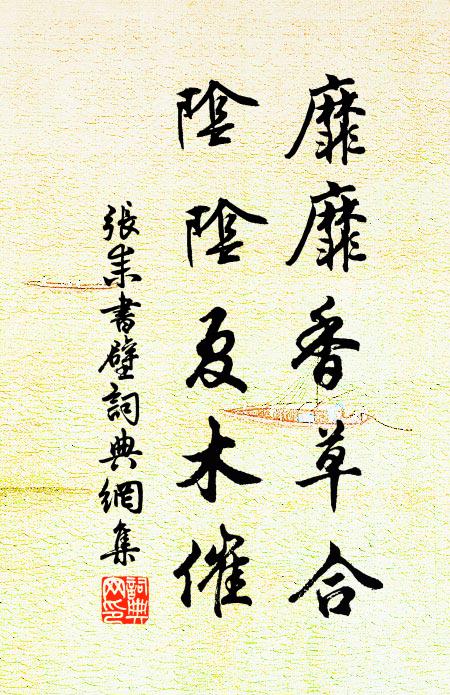 靡靡香草合
陰陰夏木催
張耒書壁詞典網集
詞典网印